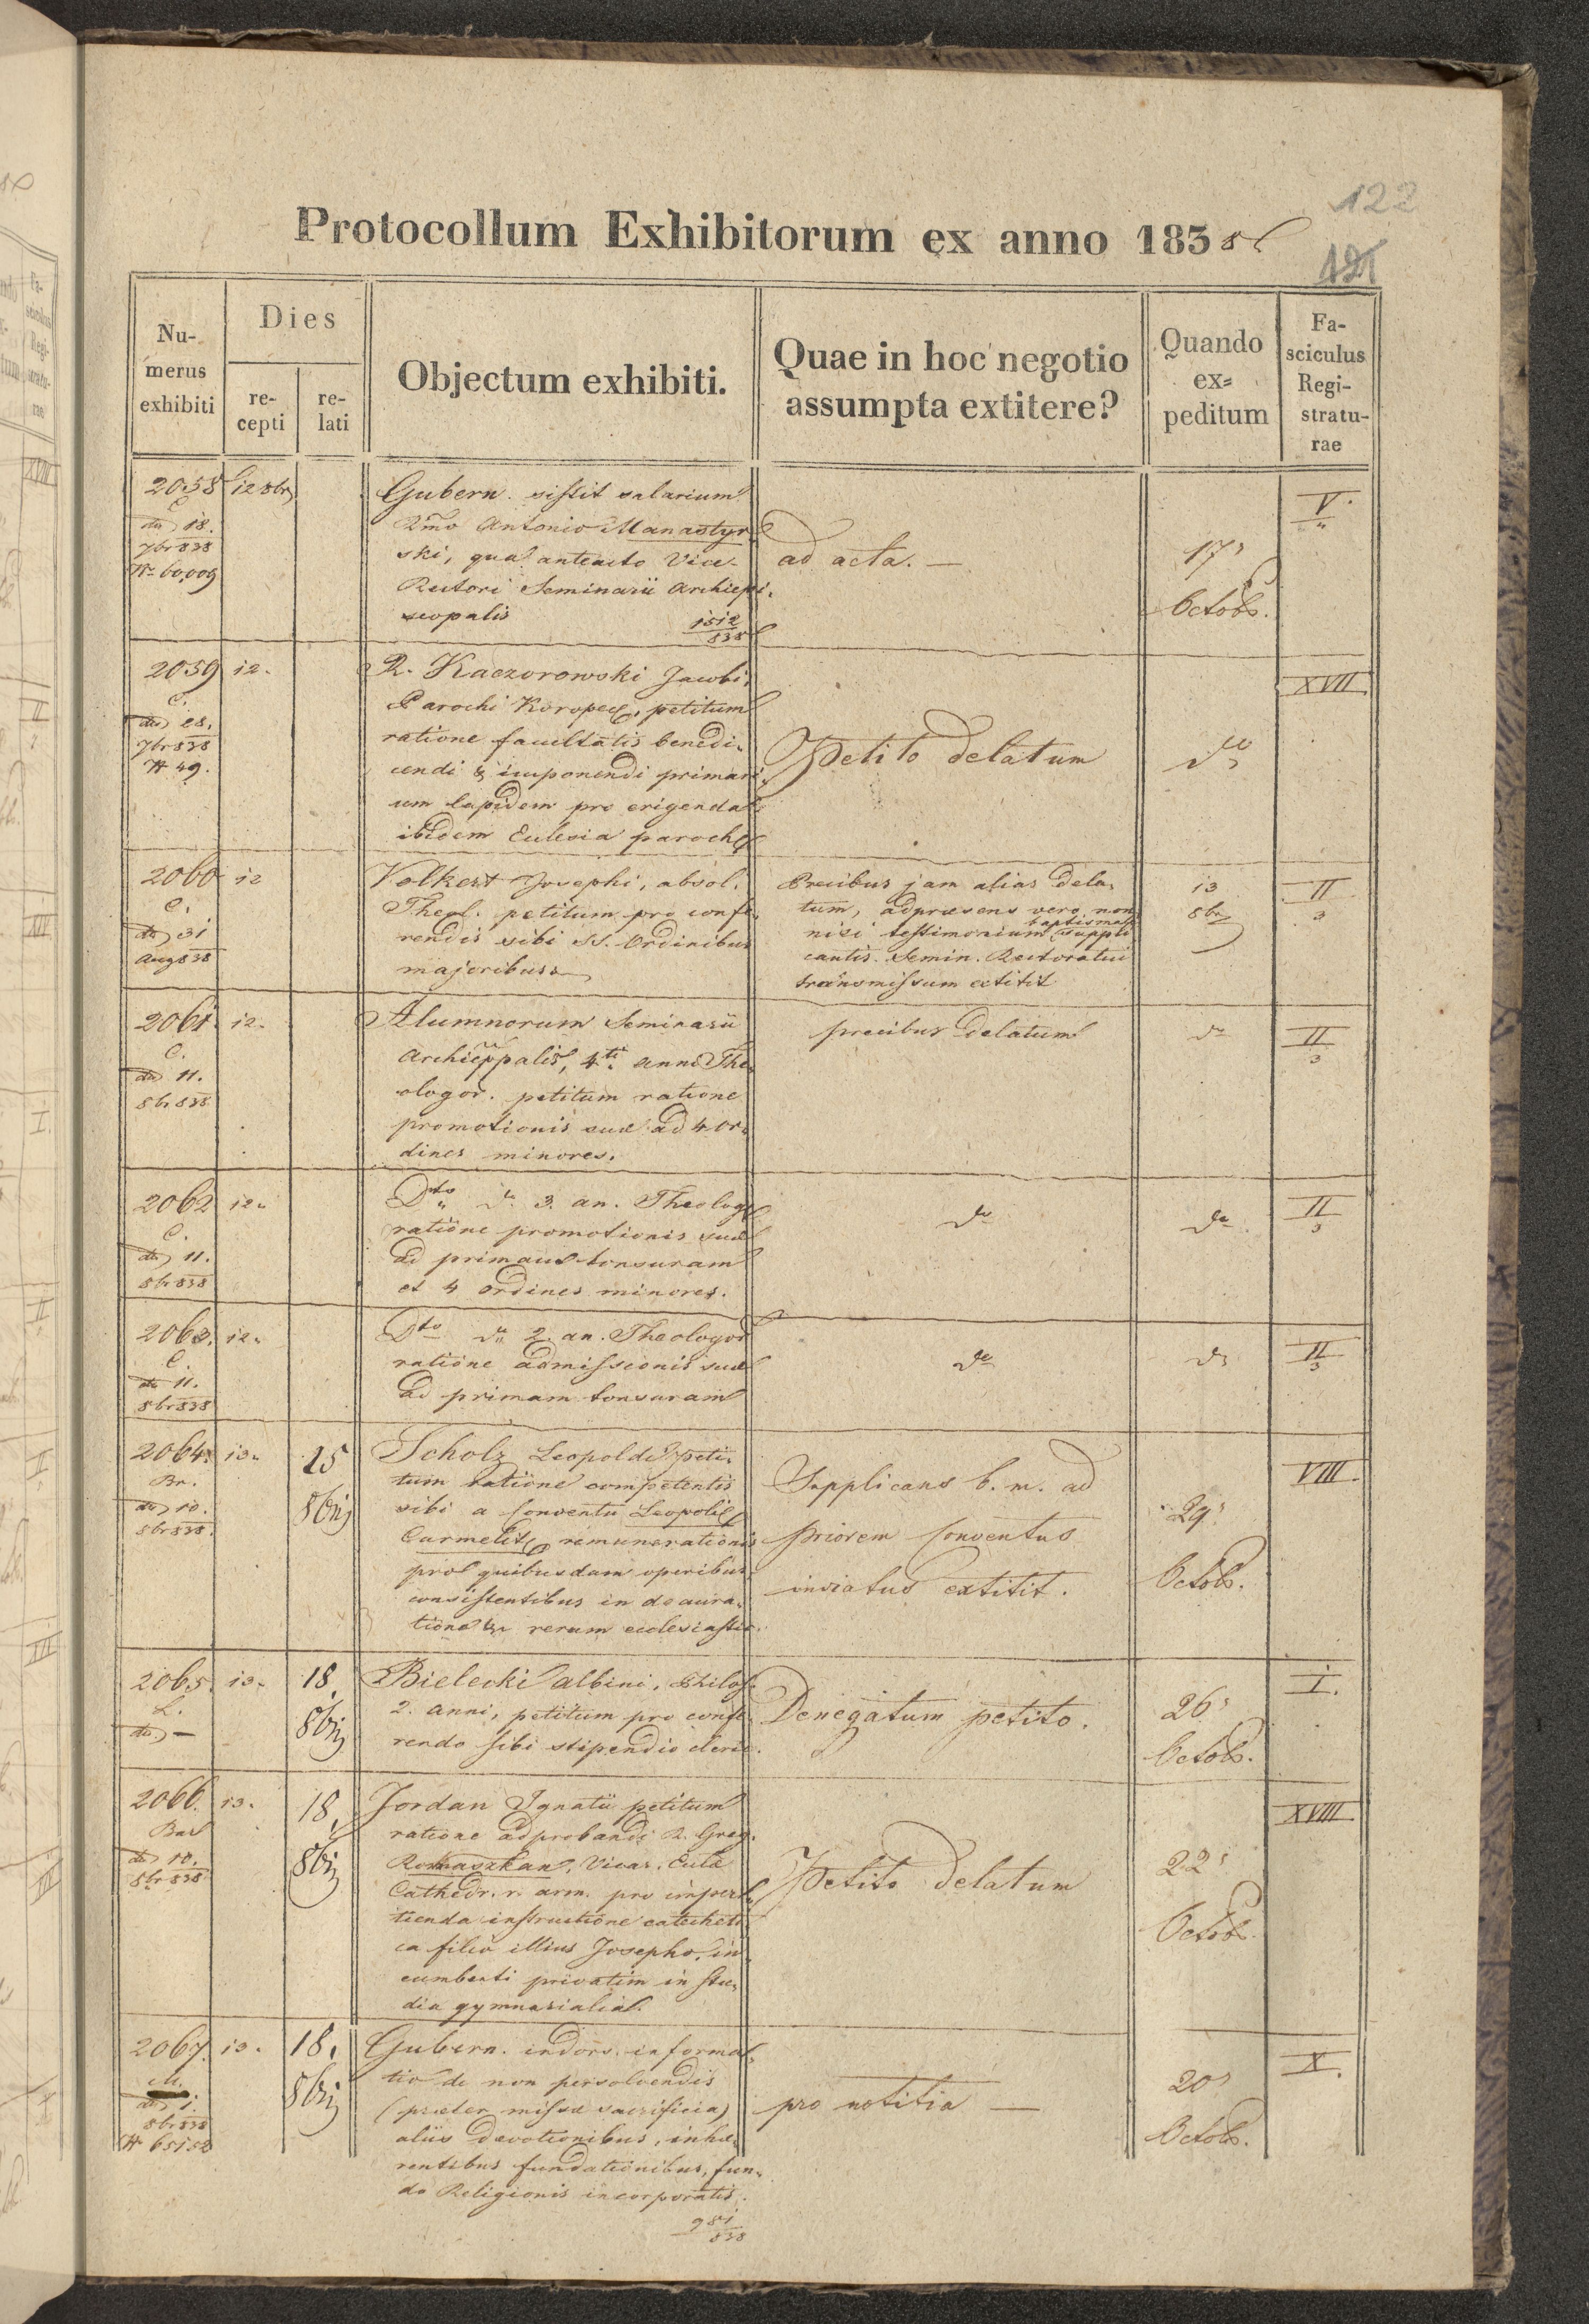 122
Protocollum Exhibitorum ex anno 1838
121
Numerus exhibiti
Dies
recepti
relati
Objectum exhibiti.
Quae in hoc negotio assumpta extitere?
Quando ex=peditum
Fasciculus Registraturae
2058 12 8br
C.
dto 18.
7br 838
N 60,009
Gubern. sistit salarium
Rmo Antonio Manastyr-
ski, qua anteacto Vice-
Rectori Seminarii Archiepi-
scopalis 1512/838
ad acta. —
17
Octobr.
V.
2059 12.
C.
dto 28.
7br 838
N 49.
R. Kaczorowski Jacobi,
Parochi Koropec, petitum
ratione facultatis benedi-
cendi & imponendi primari-
um lapidem pro erigenda
ibidem Ecclesia paroch
Petito delatum
do
XVII.
2060 12
C.
dto 31
Aug 838
Volkert Josephi, absol.
Theol. petitum pro confe-
rendis sibi SS. Ordinibus
majoribus
Precibus jam alias dela-
tum, adpraesens vero non
nisi testimonium baptismale suppli
cantis. Semin. Rectoratui
transmissum extitit
13
8br
II
3
2061. 12.
C.
dto 11.
8br 838
Alumnorum Seminarii
Archieppalis, 4ti anni The-
ologor. petitum ratione
promotionis suae ad 4 or-
dines minores.
precibus delatum
do
II
3
2062 12.
C.
dto 11.
8br 838
Dto do 3. an. Theolog
ratione promotionis suae
ad primam tonsuram
et 4 ordines minores.
do
do
II
3
2063. 12.
C.
dto 11.
8br 838
Dto do 2. an. Theologor
ratione admissionis suae
ad primam tonsuram
do
do
II
3
2064. 13.
Br.
dto 10.
8br 838.
15
8bris
Scholz Leopoldi peti-
tum ratione competentis
sibi a Conventu Leopoli
Carmelit remunerationis
pro quibusdam operibus
consistentibus in deaura-
tione & rerum ecclesiastic.
Supplicans b. m. ad
Priorem Conventus
inviatus extitit.
29
Octob.
VIII.
2065. 13.
L.
dto —
18
8bris
Bielecki Albini, Philos.
2. anni, petitum pro confe-
rendo sibi stipendio cleric.
Denegatum petito.
26
Octob.
I.
2066. 13.
Bar
dto 10.
8br 838
18.
8bris
Jordan Ignatii petitum
ratione adprobandi R. Greg.
Romaszkan, Vicar. Eccla
Cathedr. r. arm. pro imper-
tienda instructione catecheti
ca filio illius Josepho, in
cumbenti privatim in stu-
dia gymnasialia.
Petito delatum
22
Octob.
XVIII
2067. 13.
M.
dto 1.
8br 838
N 65152
18.
8bris
Gubern. indors. informa-
tio de non persolvendis
(praeter missae sacrificia)
aliis devotionibus, inhae-
rentibus fundationibus, fun-
do Religionis incorporatis.
981/838
pro notitia —
20
Octob.
X.